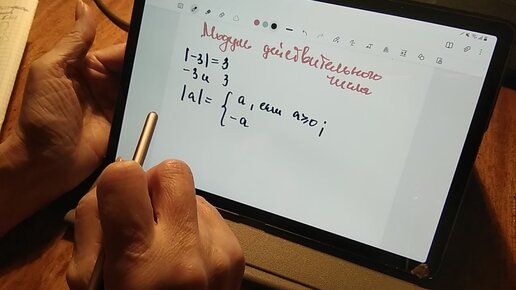 Модуль действительного
числа
|-3|=3
-3 и 3
|a|= { a, если a≥0;
-a